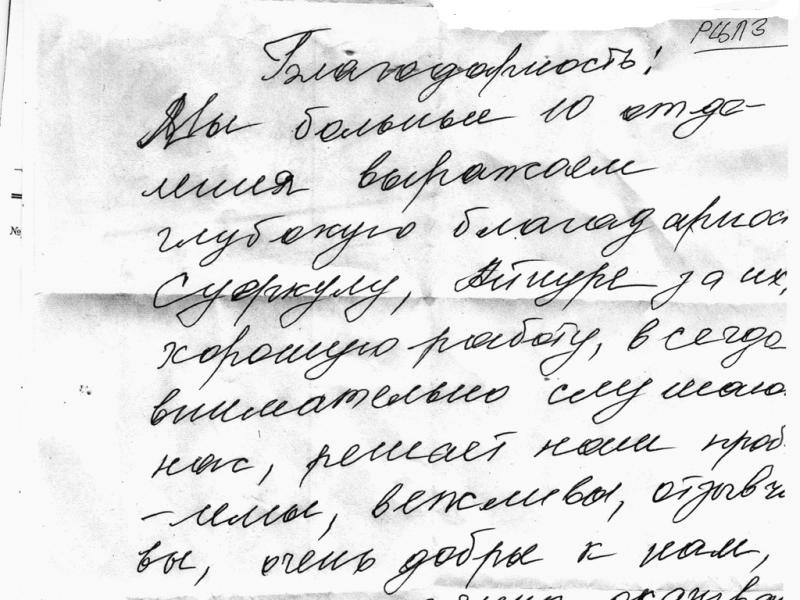 РЦПЗ
Благодарность!
Мы больные 10 отде-
ления выражаем
глубокую благадарнос
Суоркулу, Айнуре за их,
хорошую работу, всегда
внимательно слушают
нас, решает наши проб
-лемы, вежливы, отзывчи
вы, очень добры к нам,